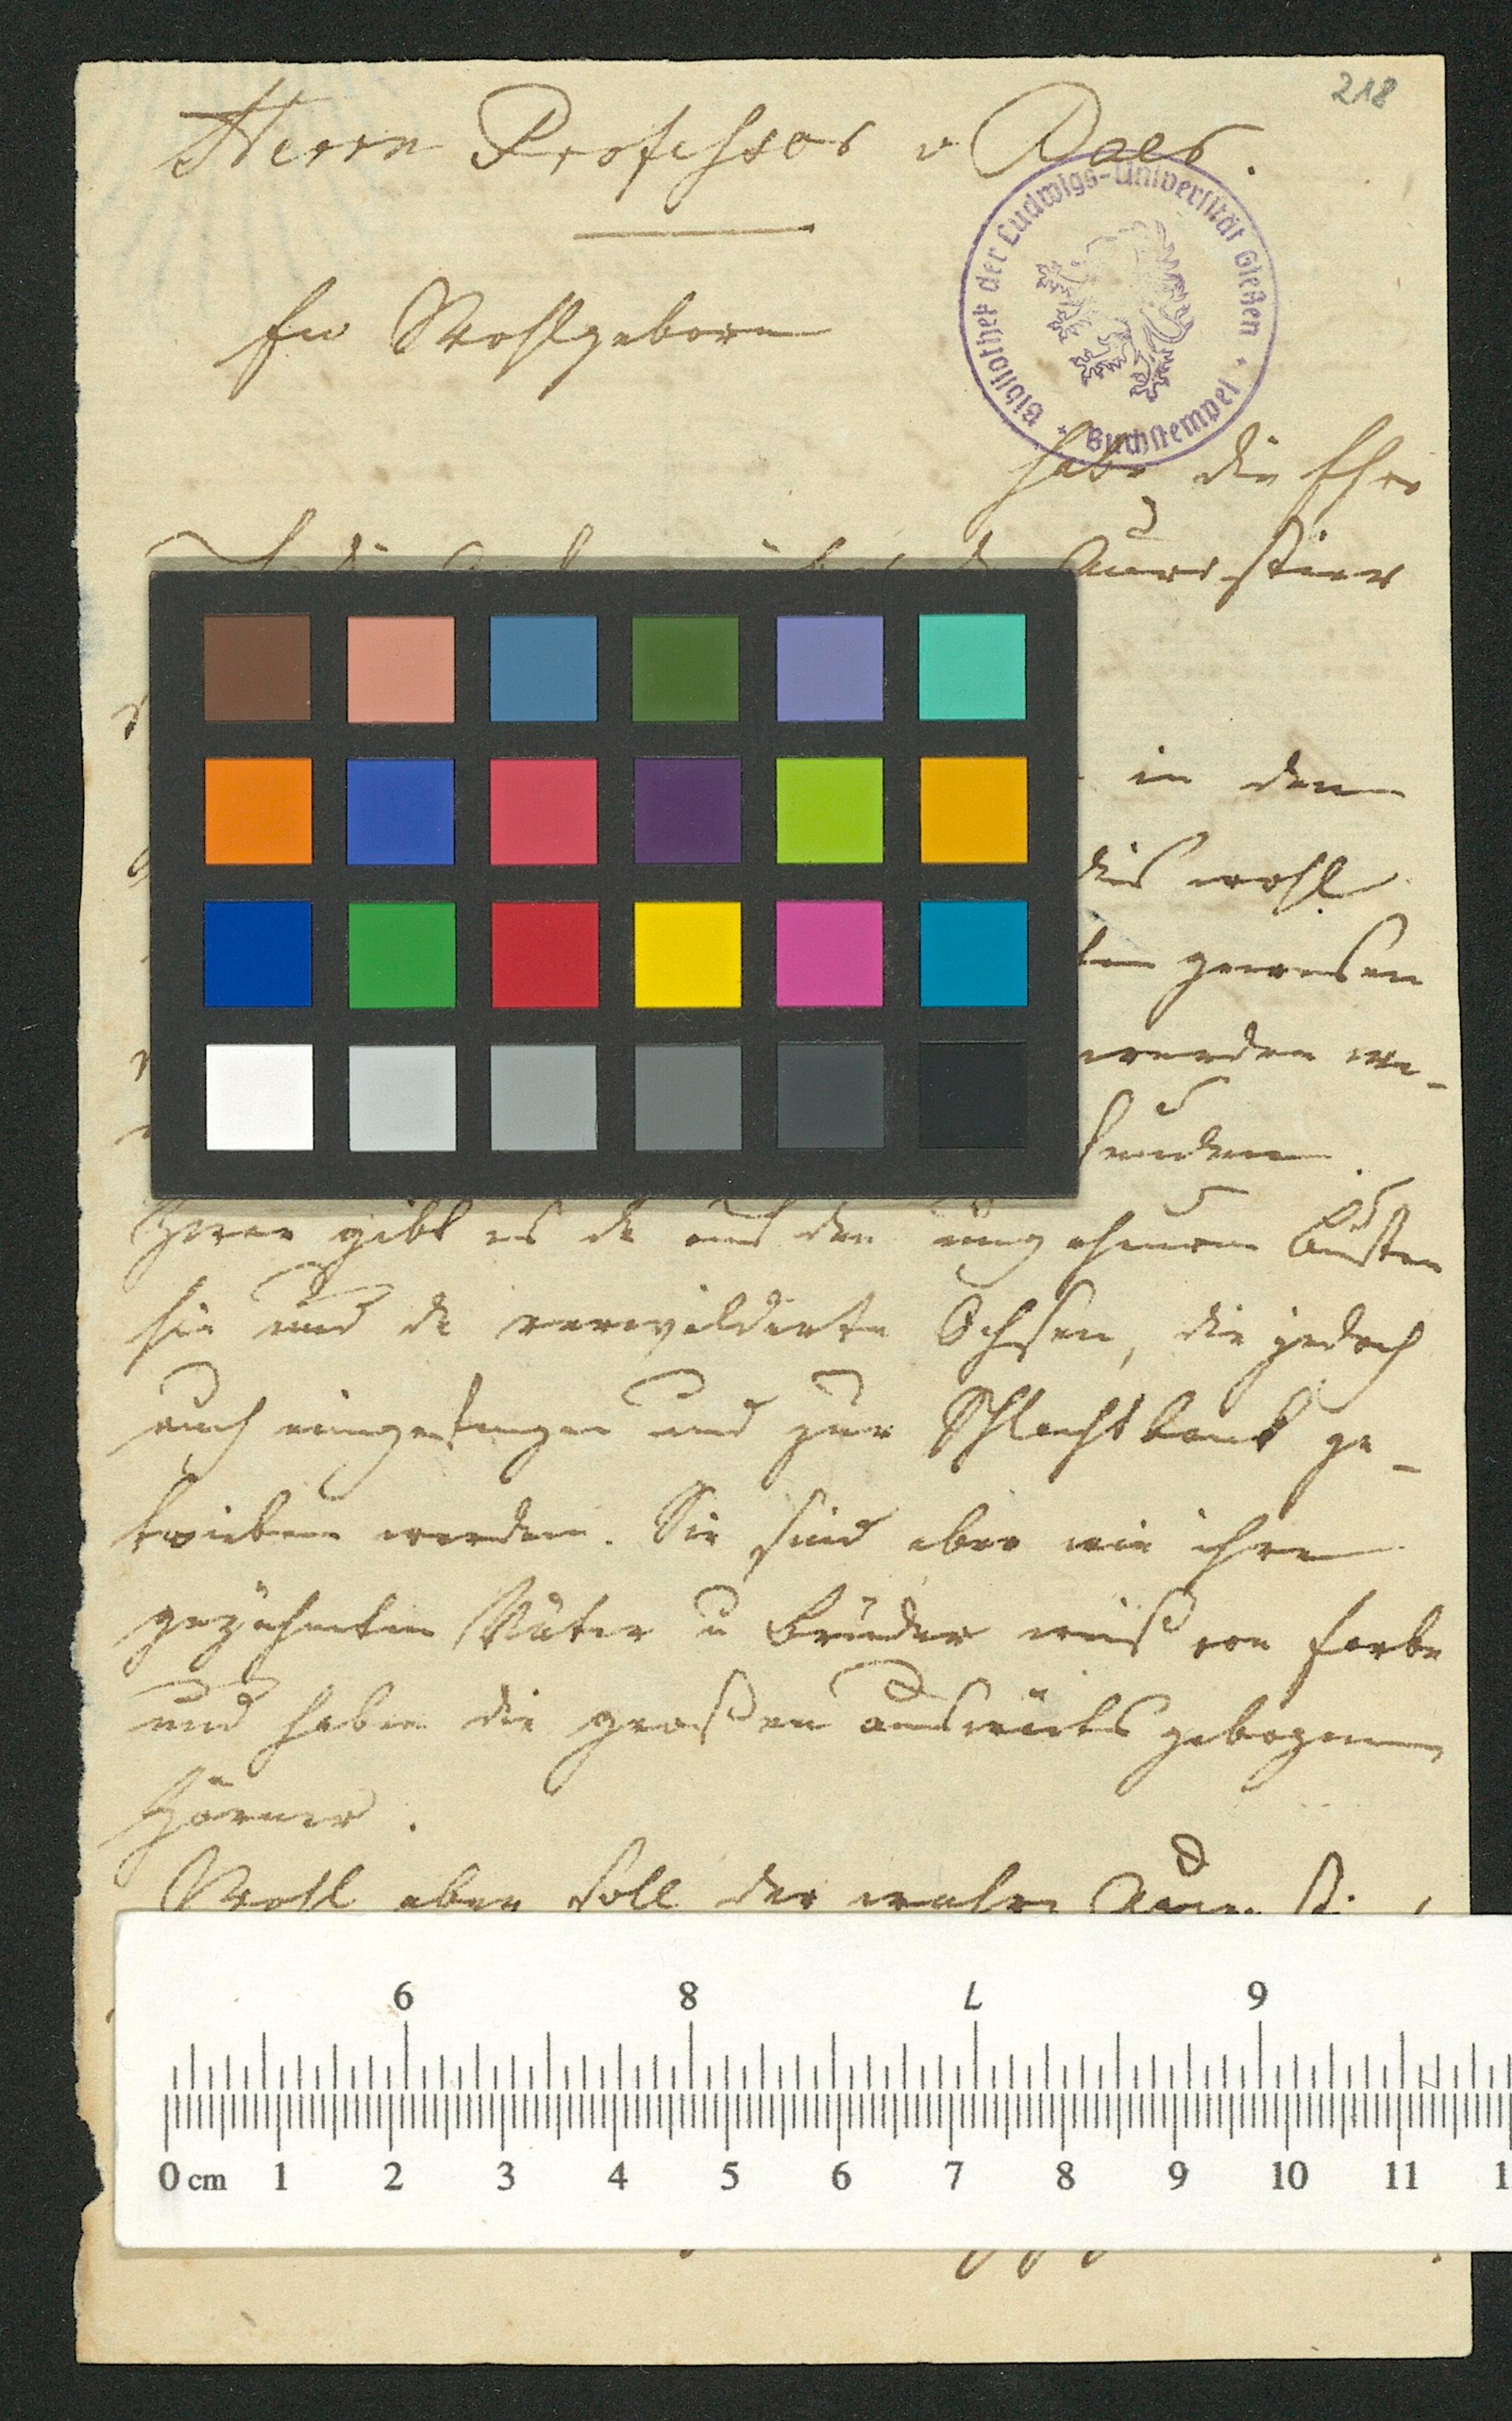 218
Herrn Professor v Baer.
Bibliothek der Ludwigs-Universität Gießen * Buchstempel *
Ew Wohlgeborn
habe die Ehre
Auerstier
in dem
dies wohl
gewesen
werden
gibt es da auf den ungeheuren
hie und da verwilderte Ochsen, die jedoch
auch eingefangen und zur Schlachtbank ge-
trieben werden. Sie sind aber wie ihre
gezähmten Väter u Brüder weiß von Farbe
und haben die großen auswärts gebogenen
Hörner.
Wohl aber soll der wahre
6 8 7 9
0 cm 1 2 3 4 5 6 7 8 9 10 11